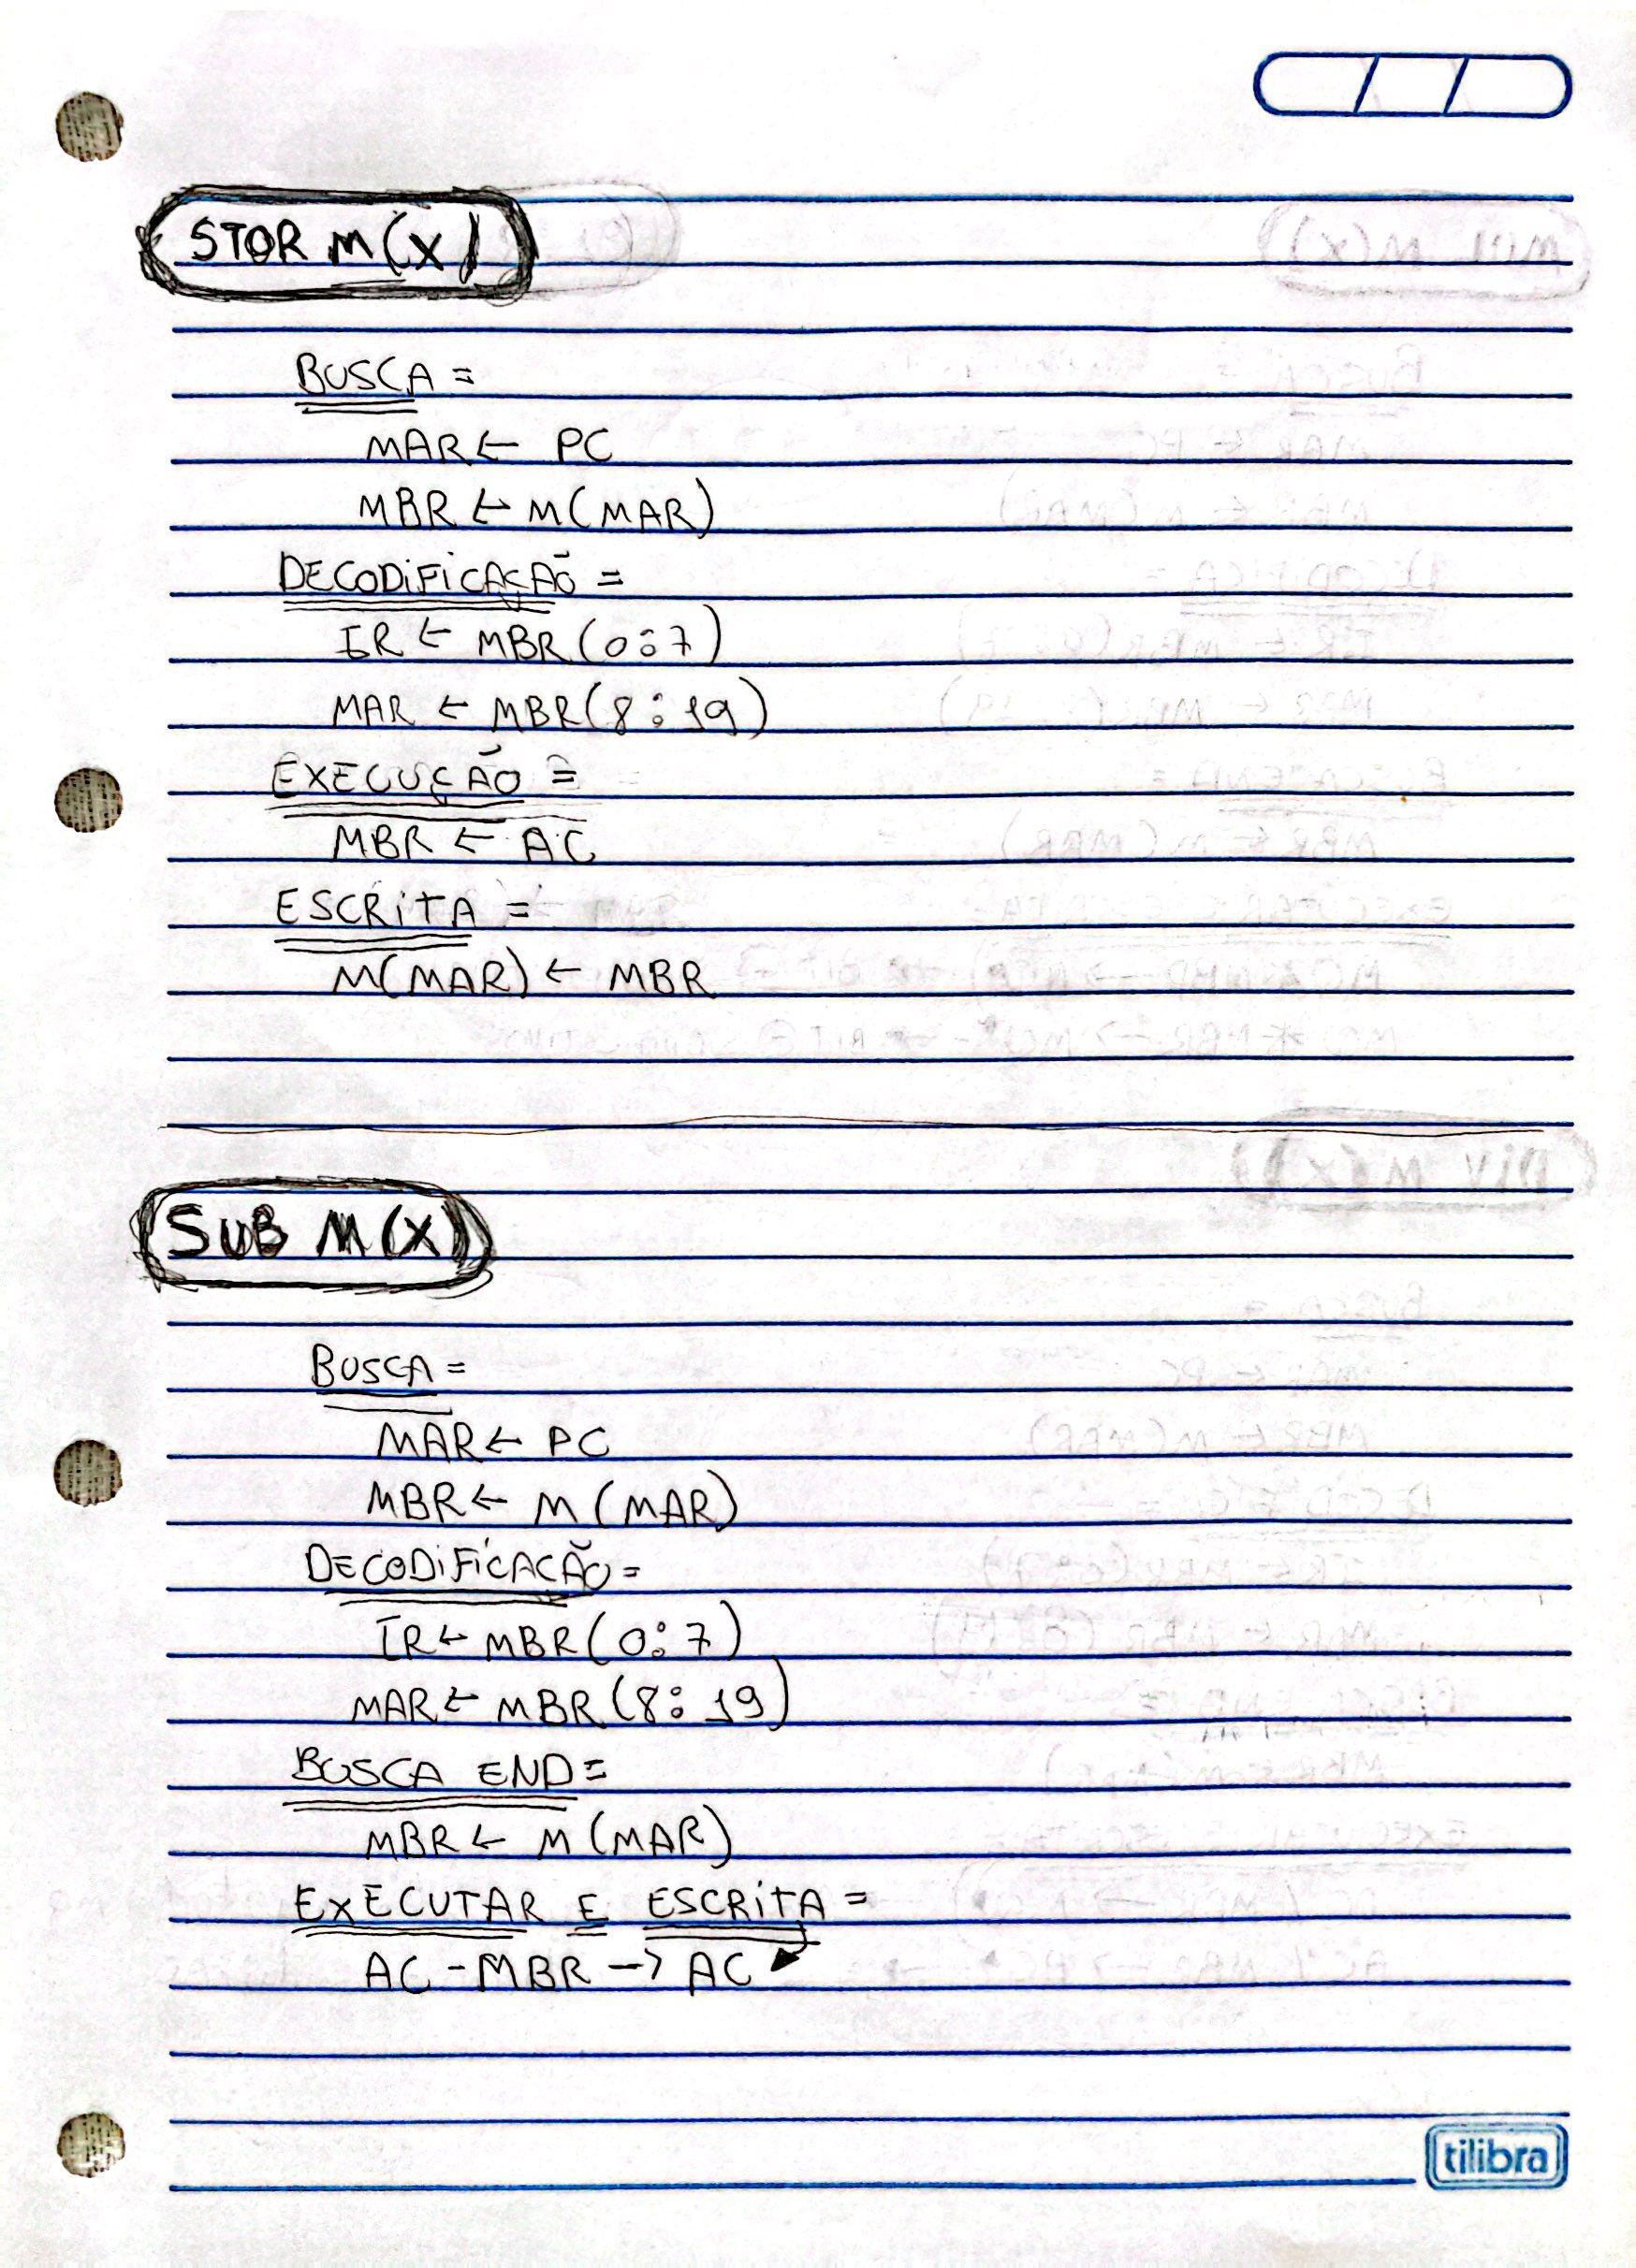 STOR M(X)
BUSCA =
MAR ← PC
MBR ← M(MAR)
DECODIFICAÇÃO =
IR ← MBR(0:7)
MAR ← MBR(8:19)
EXECUÇÃO =
MBR ← AC
ESCRITA =
M(MAR) ← MBR
SUB M(X)
BUSCA =
MAR ← PC
MBR ← M(MAR)
DECODIFICAÇÃO =
IR ← MBR(0:7)
MAR ← MBR(8:19)
BUSCA END =
MBR ← M(MAR)
EXECUTAR E ESCRITA =
AC - MBR → AC
tilibra